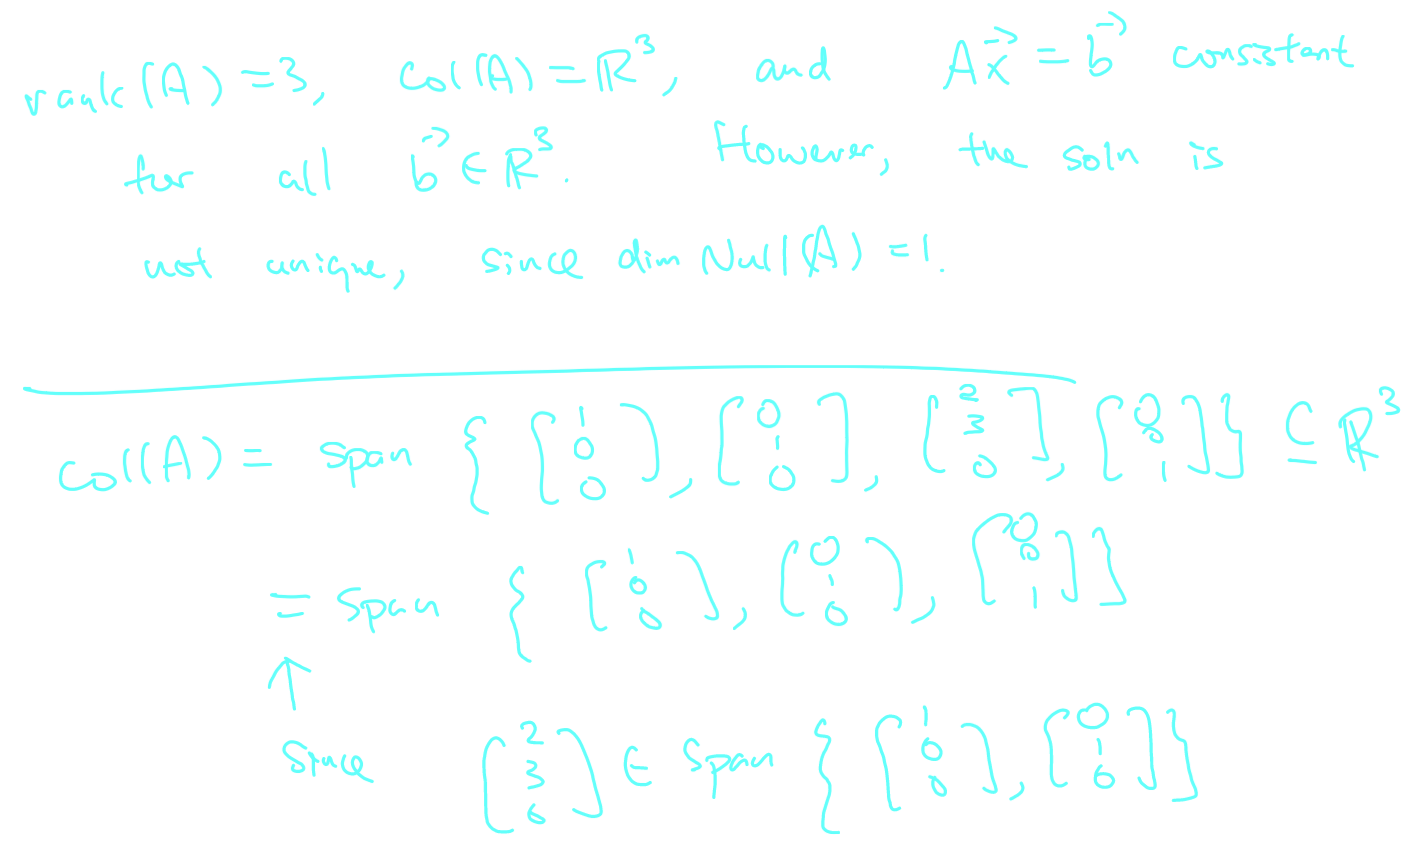 rank(A)=3, Col(A)=ℝ³, and Ax⃗=b⃗ consistent
for all b⃗∈ℝ³. However, the soln is
not unique, since dim Null(A)=1.
Col(A) = span { [1 0 0], [0 1 0], [2 3 0], [0 0 1] } ⊆ ℝ³
= span { [1 0 0], [0 1 0], [0 0 1] }
↑
since [2 3 0] ∈ span { [1 0 0], [0 1 0] }